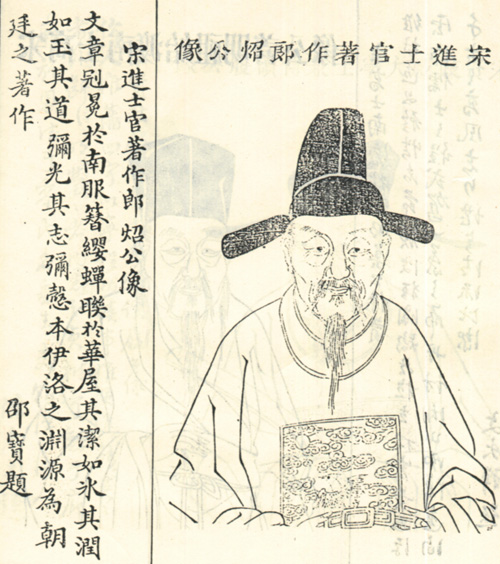 宋進士官著作郎炤公像
宋進士官著作郎炤公像
文章冠冕於南服簪纓蟬聯於華屋其潔如冰其潤
如玉其道彌光其志彌慤本伊洛之淵源為朝
廷之著作 邵寶題